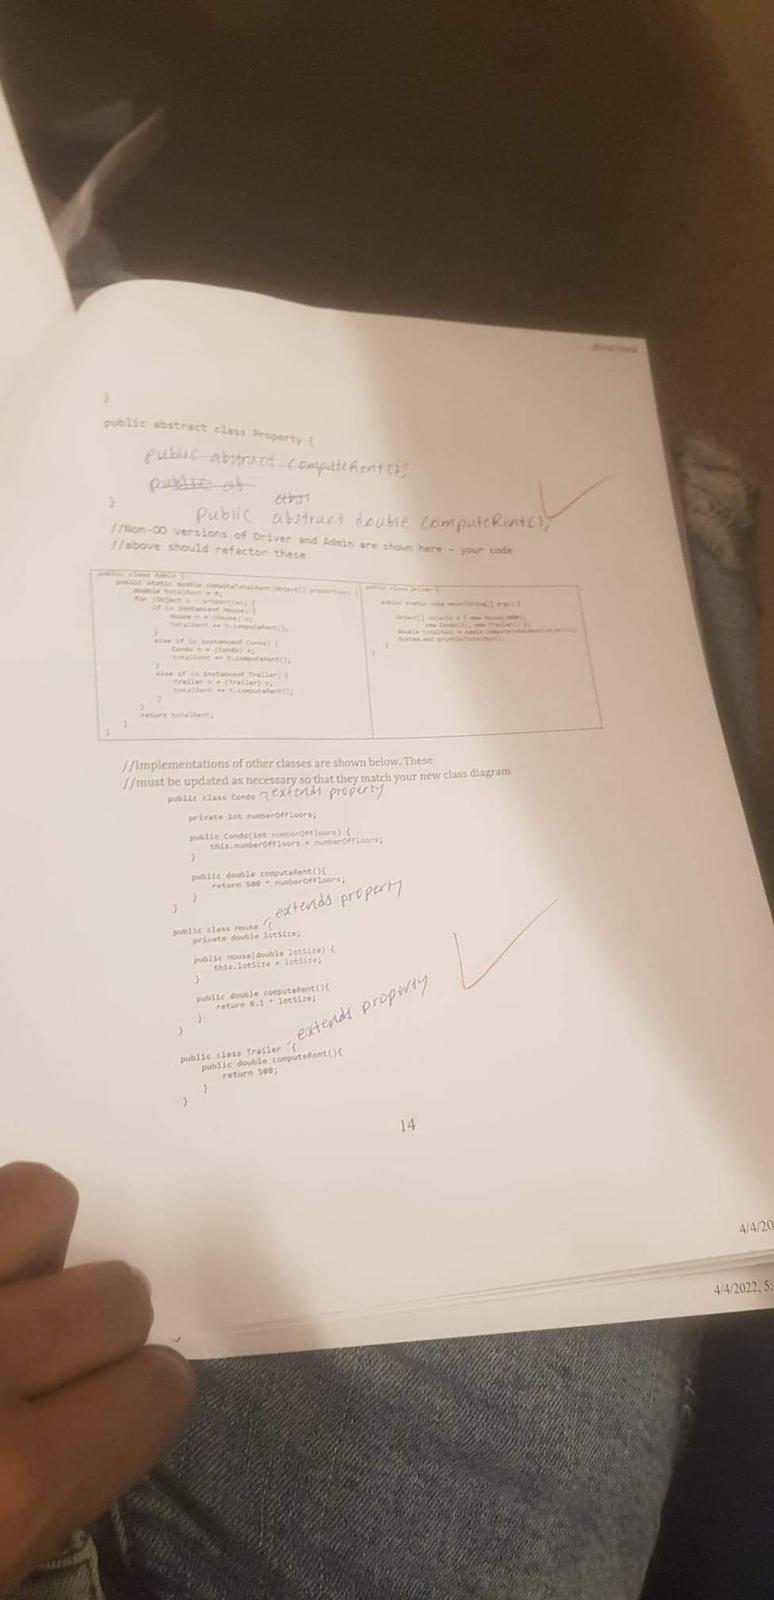 }
public abstract class Property {
public abstract computeRent();
public ab
public abstract double computeRent();
}
//Non-OO versions of Driver and Admin are shown here - your code
//above should refactor these
public class Admin {
public static double computeTotalRent(Object[] properties) {
double totalRent = 0;
for (Object o : properties) {
if (o instanceof House) {
House h = (House) o;
totalRent += h.computeRent();
}
else if (o instanceof Condo) {
Condo h = (Condo) o;
totalRent += h.computeRent();
}
else if (o instanceof Trailer) {
Trailer h = (Trailer) o;
totalRent += h.computeRent();
}
}
return totalRent;
}
}
public class Driver {
public static void main(String[] args) {
Object[] objects = { new
new new Trailer() };
double totalRent = Admin.computeTotalRent(objects);
System.out.println(totalRent);
}
}
//Implementations of other classes are shown below. These
//must be updated as necessary so that they match your new class diagram
public class Condo { extends property
private int numberOfFloors;
public Condo(int numberOfFloors) {
this.numberOfFloors = numberOfFloors;
}
public double computeRent(){
return 500 * numberOfFloors;
}
}
public class House { extends property
private double lotSize;
public House(double lotSize) {
this.lotSize = lotSize;
}
public double computeRent(){
return 0.1 * lotSize;
}
}
public class Trailer { extends property
public double computeRent(){
return 500;
}
}
14
4/4/20
4/4/2022, 5: